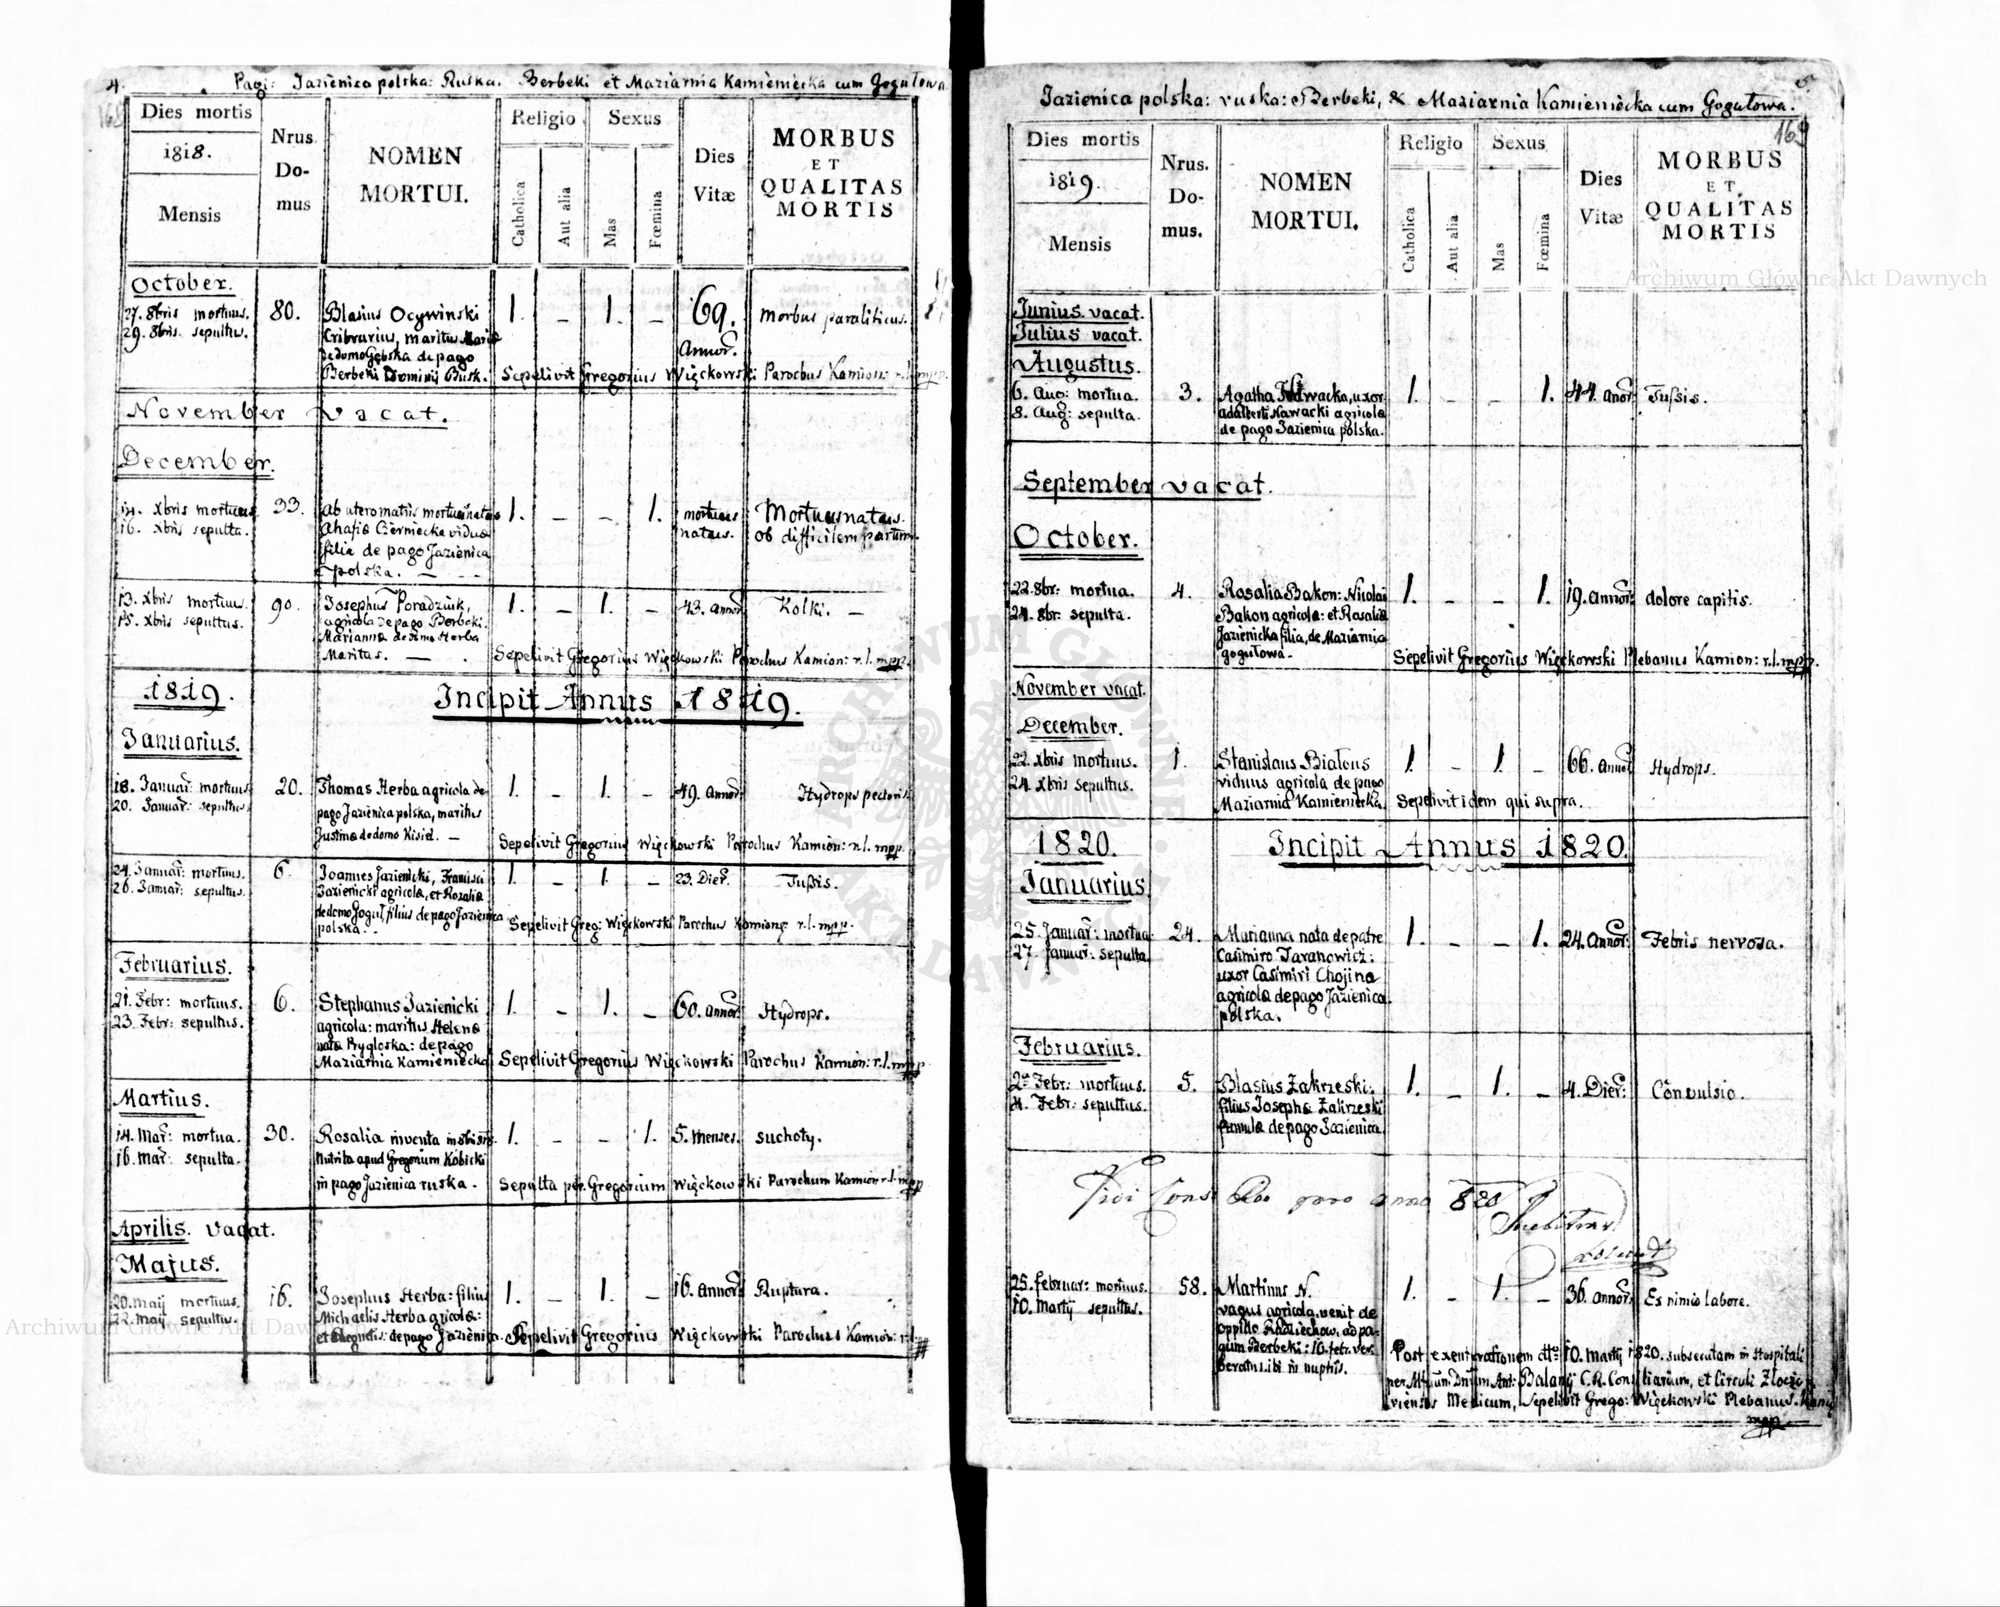 4.
Pagi: Jazienica polska: Ruska. Berbeki et Maziarnia Kamieniecka cum Gogułowa.
168
Dies mortis
1818.
Mensis
Nrus
Domus
NOMEN
MORTUI.
Religio
Catholica
Aut alia
Sexus
Mas
Fœmina
Dies
Vitæ
MORBUS
ET
QUALITAS
MORTIS
October.
27. 8bris mortuus. 80. Blasius Ocywinski 1. – 1. – 69. Morbus paraliticus.
29. 8bris. sepultus. Cribrarius, maritus Maria Annor.
de domo Gębska de pago
Berbeki Dominij Busk. Sepelivit Gregorius Więckowski Parochus Kamion: r.l. mpp.
November vacat.
December.
14. Xbris mortuus 33. Ab utero matris mortuus natus 1. – – 1. mortuus Mortuus natus.
16. Xbris sepulta. Ahafiæ Czerniecka viduæ natus. ob difficilem partum.
filia de pago Jazienica
polska.
13. Xbris mortuus. 90. Josephus Poradziuk, 1. – 1. – 43. annor Kolki. –
15. Xbris sepultus. agricola de pago Berbeki.
Marianna de domo Herba
Maritus. – Sepelivit Gregorius Więckowski Parochus Kamion: r.l. mpp.
1819. Incipit Annus 1819.
Januarius.
18. Januar: mortuus 20. Thomas Herba agricola de 1. – 1. – 49. Annor: Hydrops pectoris
20. Januar: sepultus pago Jazienica polska, maritus
Justinæ de domo Kisiel. – Sepelivit Gregorius Więckowski Parochus Kamion: r.l. mpp.
24. Januar: mortuus. 6. Joannes Jazienicki, Francisci 1. – 1. – 23. Dier. Tussis.
26. Januar: sepultus. Jazienicki agricolæ, et Rozaliæ
de domo Goguł, filius de pago Jazienica
polska. Sepelivit Greg: Więckowski Parochus Kamion: r.l. mpp.
Februarius.
21. Febr: mortuus. 6. Stephanus Jazienicki 1. – 1. – 60. annor Hydrops.
23. Febr: sepultus. agricola: maritus Helenæ
natæ Prygloska: de pago
Maziarnia Kamieniecka Sepelivit Gregorius Więckowski Parochus Kamion: r.l. mpp
Martius.
14. Mar: mortua. 30. Rosalia inventa in 1. – – 1. 5. Menses. suchoty.
16. Mar: sepulta. Nutrita apud Gregorium Kobicki
in pago Jazienica ruska. Sepulta per Gregorium Więckowski Parochum Kamion r.l. mpp
Aprilis. vacat.
Majus.
20. maij mortuus. 16. Josephus Herba: filius 1. – 1. – 16. annor Ruptura.
22. maij sepultus. Michaelis Herba agricolæ:
et de pago Jazienica. Sepelivit Gregorius Więckowski Parochus Kamion: r.l.
5
Jazienica polska: ruska: Berbeki, & Maziarnia Kamieniecka cum Gogułowa.
169
Dies mortis
1819.
Mensis
Nrus.
Domus.
NOMEN
MORTUI.
Religio
Catholica
Aut alia
Sexus
Mas
Fœmina
Dies
Vitæ
MORBUS
ET
QUALITAS
MORTIS
Junius. vacat.
Julius vacat.
Augustus.
6. Aug: mortua. 3. Agatha Nawacka, uxor 1. – – 1. 44. anor Tussis.
8. Aug: sepulta. adalberti Nawacki agricolæ
de pago Jazienica polska.
September vacat.
October.
22. 8br: mortua. 4. Rosalia Bakon: Nicolai 1. – – 1. 19. annor: dolore capitis.
24. 8br: sepulta. Bakon agricolæ: et Rosaliæ
Jazienicka filia, de Maziarnia
gogułowa. Sepelivit Gregorius Więckowski Plebanus Kamion: r.l. mpp.
November vacat.
December.
22. Xbris mortuus. 1. Stanislaus Białous 1. – 1. – 66. annor Hydrops.
24. Xbris sepultus. viduus agricola de pago
Maziarnia Kamieniecka. Sepelivit idem qui supra.
1820. Incipit Annus 1820.
Januarius.
25. Januar: mortua 24. Marianna nata de patre 1. – – 1. 24. Annor: Febris nervosa.
27. Januar: sepulta Casimiro Taranowicz:
uxor Casimiri Chojina
agricolæ de pago Jazienica
polska.
Februarius.
2a Febr: mortuus. 5. Blasius Zakrzeski: 1. – 1. – 4. Dier: Convulsio.
4. Febr: sepultus. filius Josephæ Zakrzeski
famulæ de pago Jazienica
Vidi pro anno 820
25. februar: mortuus. 58. Martinus N. 1. – 1. – 36. annor: Ex nimio labore.
10. Martij sepultus. vagus agricola, venit de
oppido Radziechow, ad pagum
Berbeki: 16. febr. verberatus
ibi in nuptiis.
Post exenterationem dtto 10. Martij 1820. subsecutam in Hospitali
per Dnum Ant: Balanij C.R. Consiliarium, et Circuli Złoczoviensis
Medicum, Sepelivit Grego: Więckowski Plebanus. Kamio
mpp
Archiwum Główne Akt Dawnych
Archiwum Główne Akt Dawnych
ARCHIWUM GŁÓWNE AKT DAWNYCH